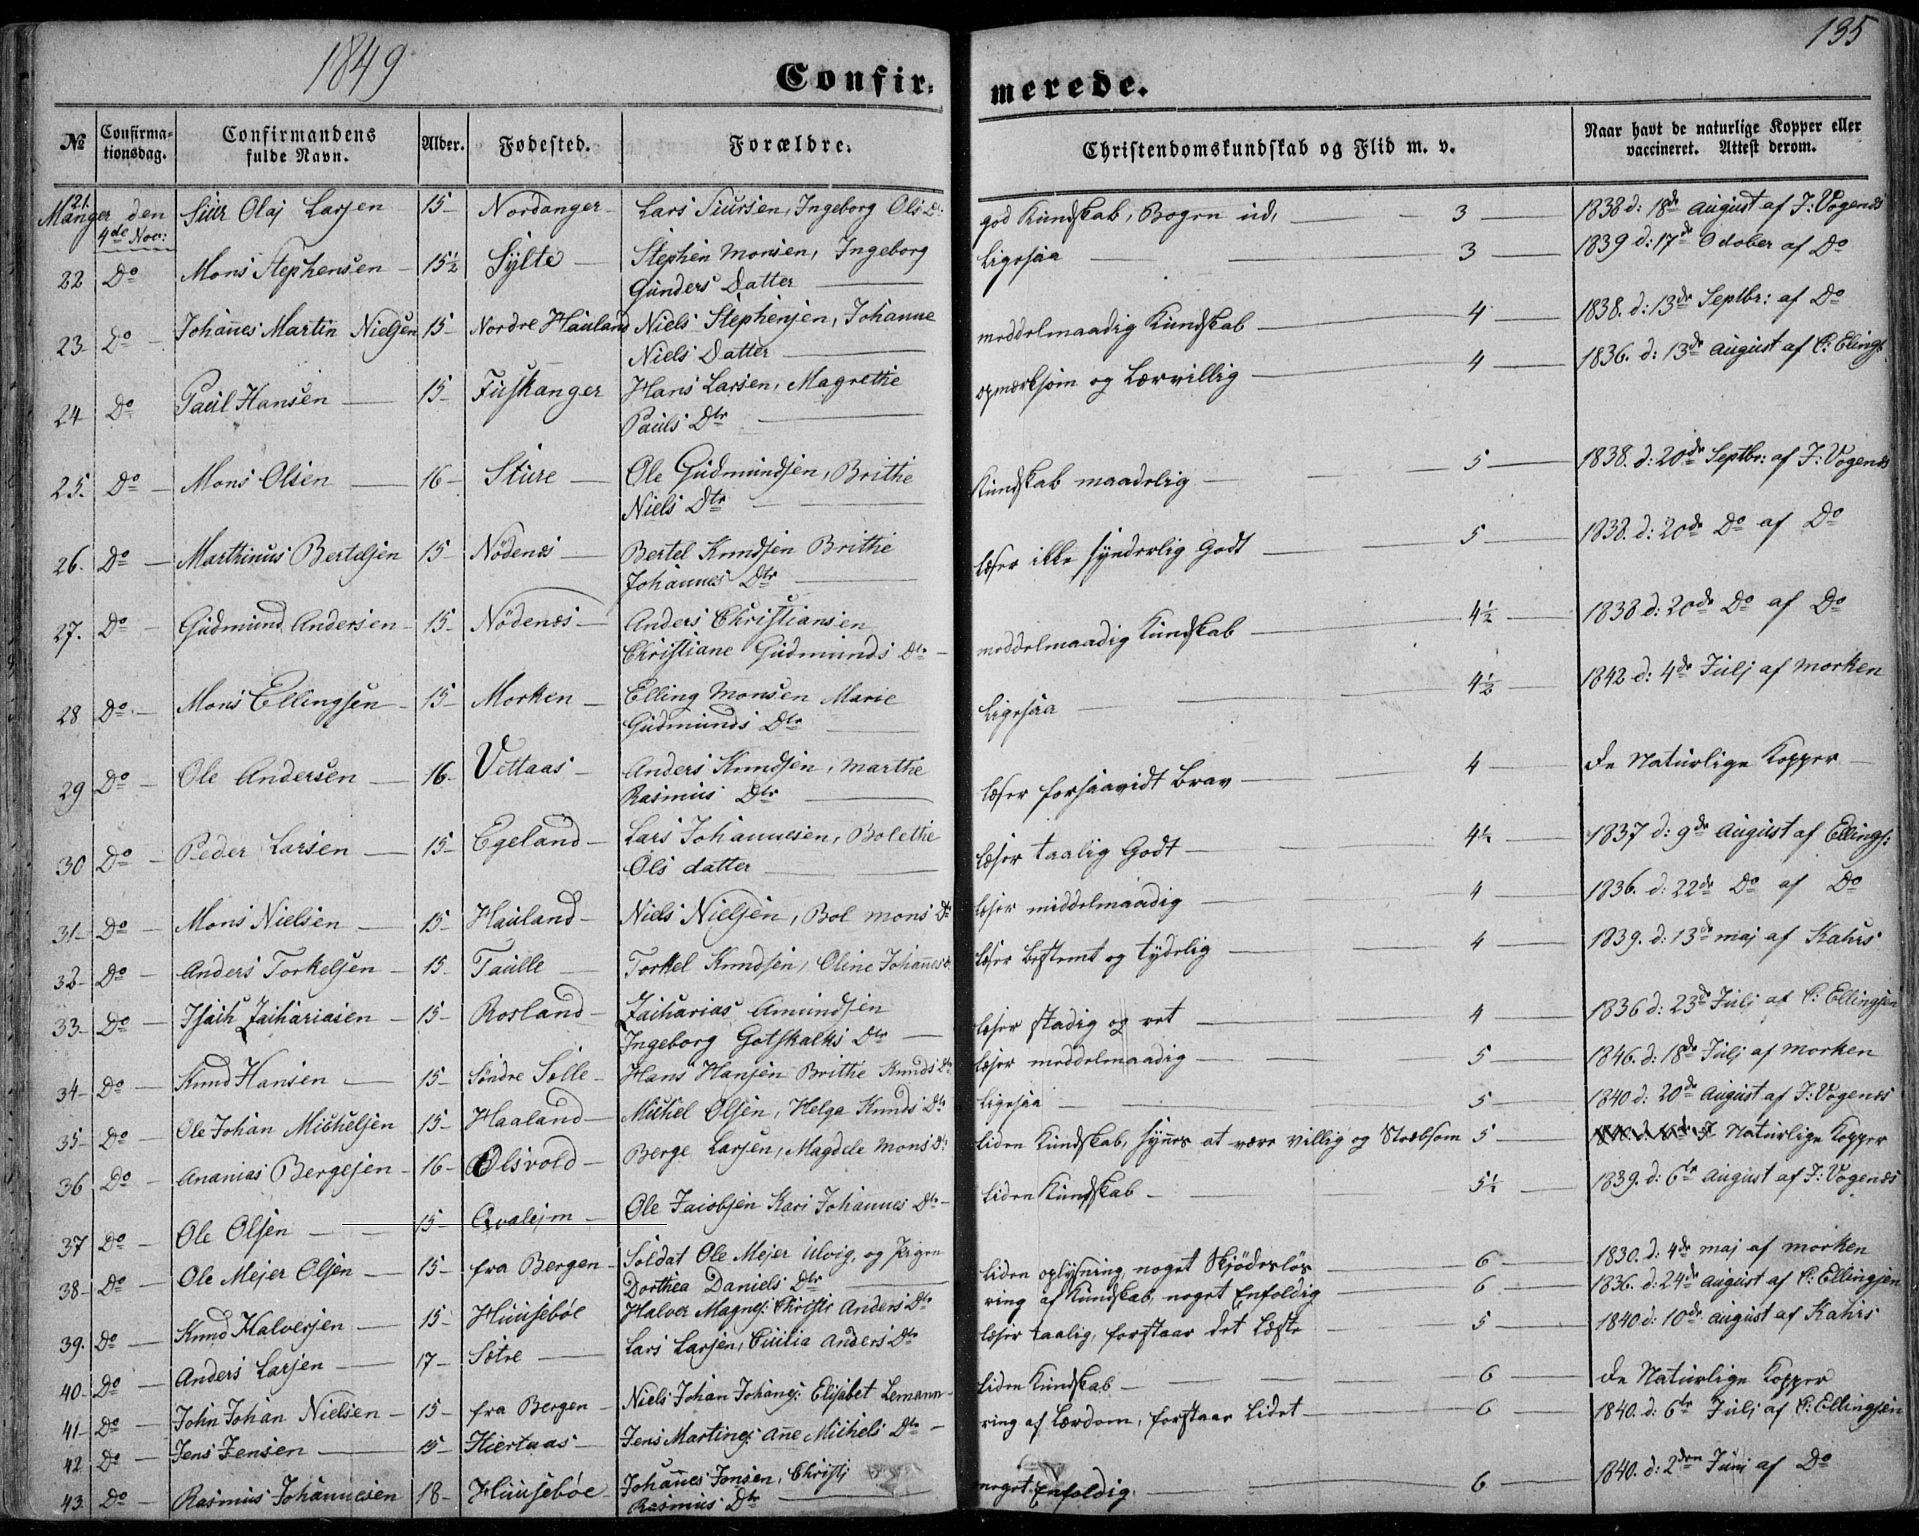 1849
135
Confir: merede.
№ Confirma-tionsdag. Confirmandens fulde Navn. Alder. Fødested. Forældre. Christendomskundskab og Flid m. v. Naar havt de naturlige Kopper eller vaccineret. Attest derom.
21. Manger den 4de Nov: Siur Olaj Larsen 15 Nordanger Lars Siursen, Ingeborg Ols Dr god Kundskab, Bogen ud, 3 1838 d: 18de August af J: Vogenæs
22 Do Mons Stephensen 15½ Sylte Stephen Monsen, Ingeborg Gunders Datter Ligesaa 3 1839 d: 17de October af Do
23 Do Johannes Martin Nielsen 15 Nordre Hauland Niels Stephensen, Johanne Niels Datter meddelmaadig Kundskab 4 1838. d: 13de Septbr: af Do
24 Do Paul Hansen 15 Fuskanger Hans Larsen, Magrethe Pauls Dtr opmærksom og Lærvillig 4 1836. d: 13de August af E: Elings
25. Do Mons Olsen 16 Sture Ole Gudmundsen, Brithe Niels Dtr Kundskab maadelig 5 1838. d: 20de Septbr: af J: Vogenæs
26. Do Marthinus Bertelsen 15 Nødenæs Bertel Knudsen Brithe Johannes Dtr læser ikke synderlig Godt 5 1838. d: 20de Do af Do
27. Do Gudmund Andersen 15 Nødenæs Anders Christiansen Christiane Gudmunds Dtr meddelmaadig Kundskab 4½ 1838 d: 20de Do af Do
28 Do Mons Ellingsen 15 Morken Elling Monsen Marie Gudmunds Dtr Ligesaa 4½ 1842 d: 4de Julj af Morken
29 Do Ole Andersen 16 Vettaas Anders Knudsen, Marthe Rasmus Dtr læser forsaavidt Brav 4 De Naturlige Kopper
30 Do Peder Larsen 15 Egeland Lars Johannesen, Bolethe Ols datter læser taalig Godt 4½ 1837 d: 9de August af Ellings:
31 Do Mons Nielsen 15 Hauland Niels Nielsen, Bol Mons Dr læser middelmaadig 4 1836. d: 22de Do af Do
32 Do Anders Torkelsen 15 Taulle Torkel Knudsen, Oline Johannes d: læser bestemt og tydelig 4 1839. d: 13de Maj af Kahrs
33 Do Isach Zachariasen 15 Rosland Zacharias Amundsen Ingeborg Gotskalks Dtr læser stadig og ret 4 1836 d: 23de Julj af E: Ellingsen
34 Do Knud Hansen 15 Søndre Sølle Hans Hansen Brithe Knuds Dtr læser meddelmaadig 5 1846. d: 18de Julj af Morken
35 Do Ole Johan Michelsen 15 Haaland Michel Olsen, Helga Knuds Dtr Ligesaa 5 1840 d: 20de August af J: Vogenæs
36 Do Ananias Bergesen 16 Olsvold Berge Larsen, Magdele Mons Dr liden Kundskab, synes at være villig og Stræbsom 5 Naturlige Kopper
37 Do Ole Olsen 15 Qvalejm Ole Jacobsen Kari Johannes Dtr liden Kundskab 5½ 1839. d: 6te August af J: Vogenæs
38 Do Ole Mejer Olsen 15 fra Bergen Soldat Ole Mejer Ulvig, og Pigen Dorthea Daniels Dtr liden oplysning noget Skjødesløs 6 1830. d: 4de Maj af Morken
39. Do Knud Halversen 15 Huusebøe Halver Magnes: Christi Anders Dtr ring af Kundskab, noget Enfoldig 6 1836. d: 24de August af E: Ellingsen
40 Do Anders Larsen 17 Sætre Lars Larsen, Cicilia Anders Dtr læser taalig, forstaar det læste 5 1840 d: 10de August af Kahrs
41 Do John Johan Nielsen 15 fra Bergen Niels Johan Johans: Elisabet Lemann liden Kundskab 6 De Naturlige Kopper
42 Do Jens Jensen 15 Hiertaas Jens Martines: Anne Michels Dtr ring af Lærdom, forstaar Lidet 6 1840. d: 6te Julj af E: Ellingsen
43. Do Rasmus Johannesen 18 Huusebøe Johannes Jonsen, Christi Rasmus Dtr noget Enfoldig 6 1840. d: 2den Juni af Do